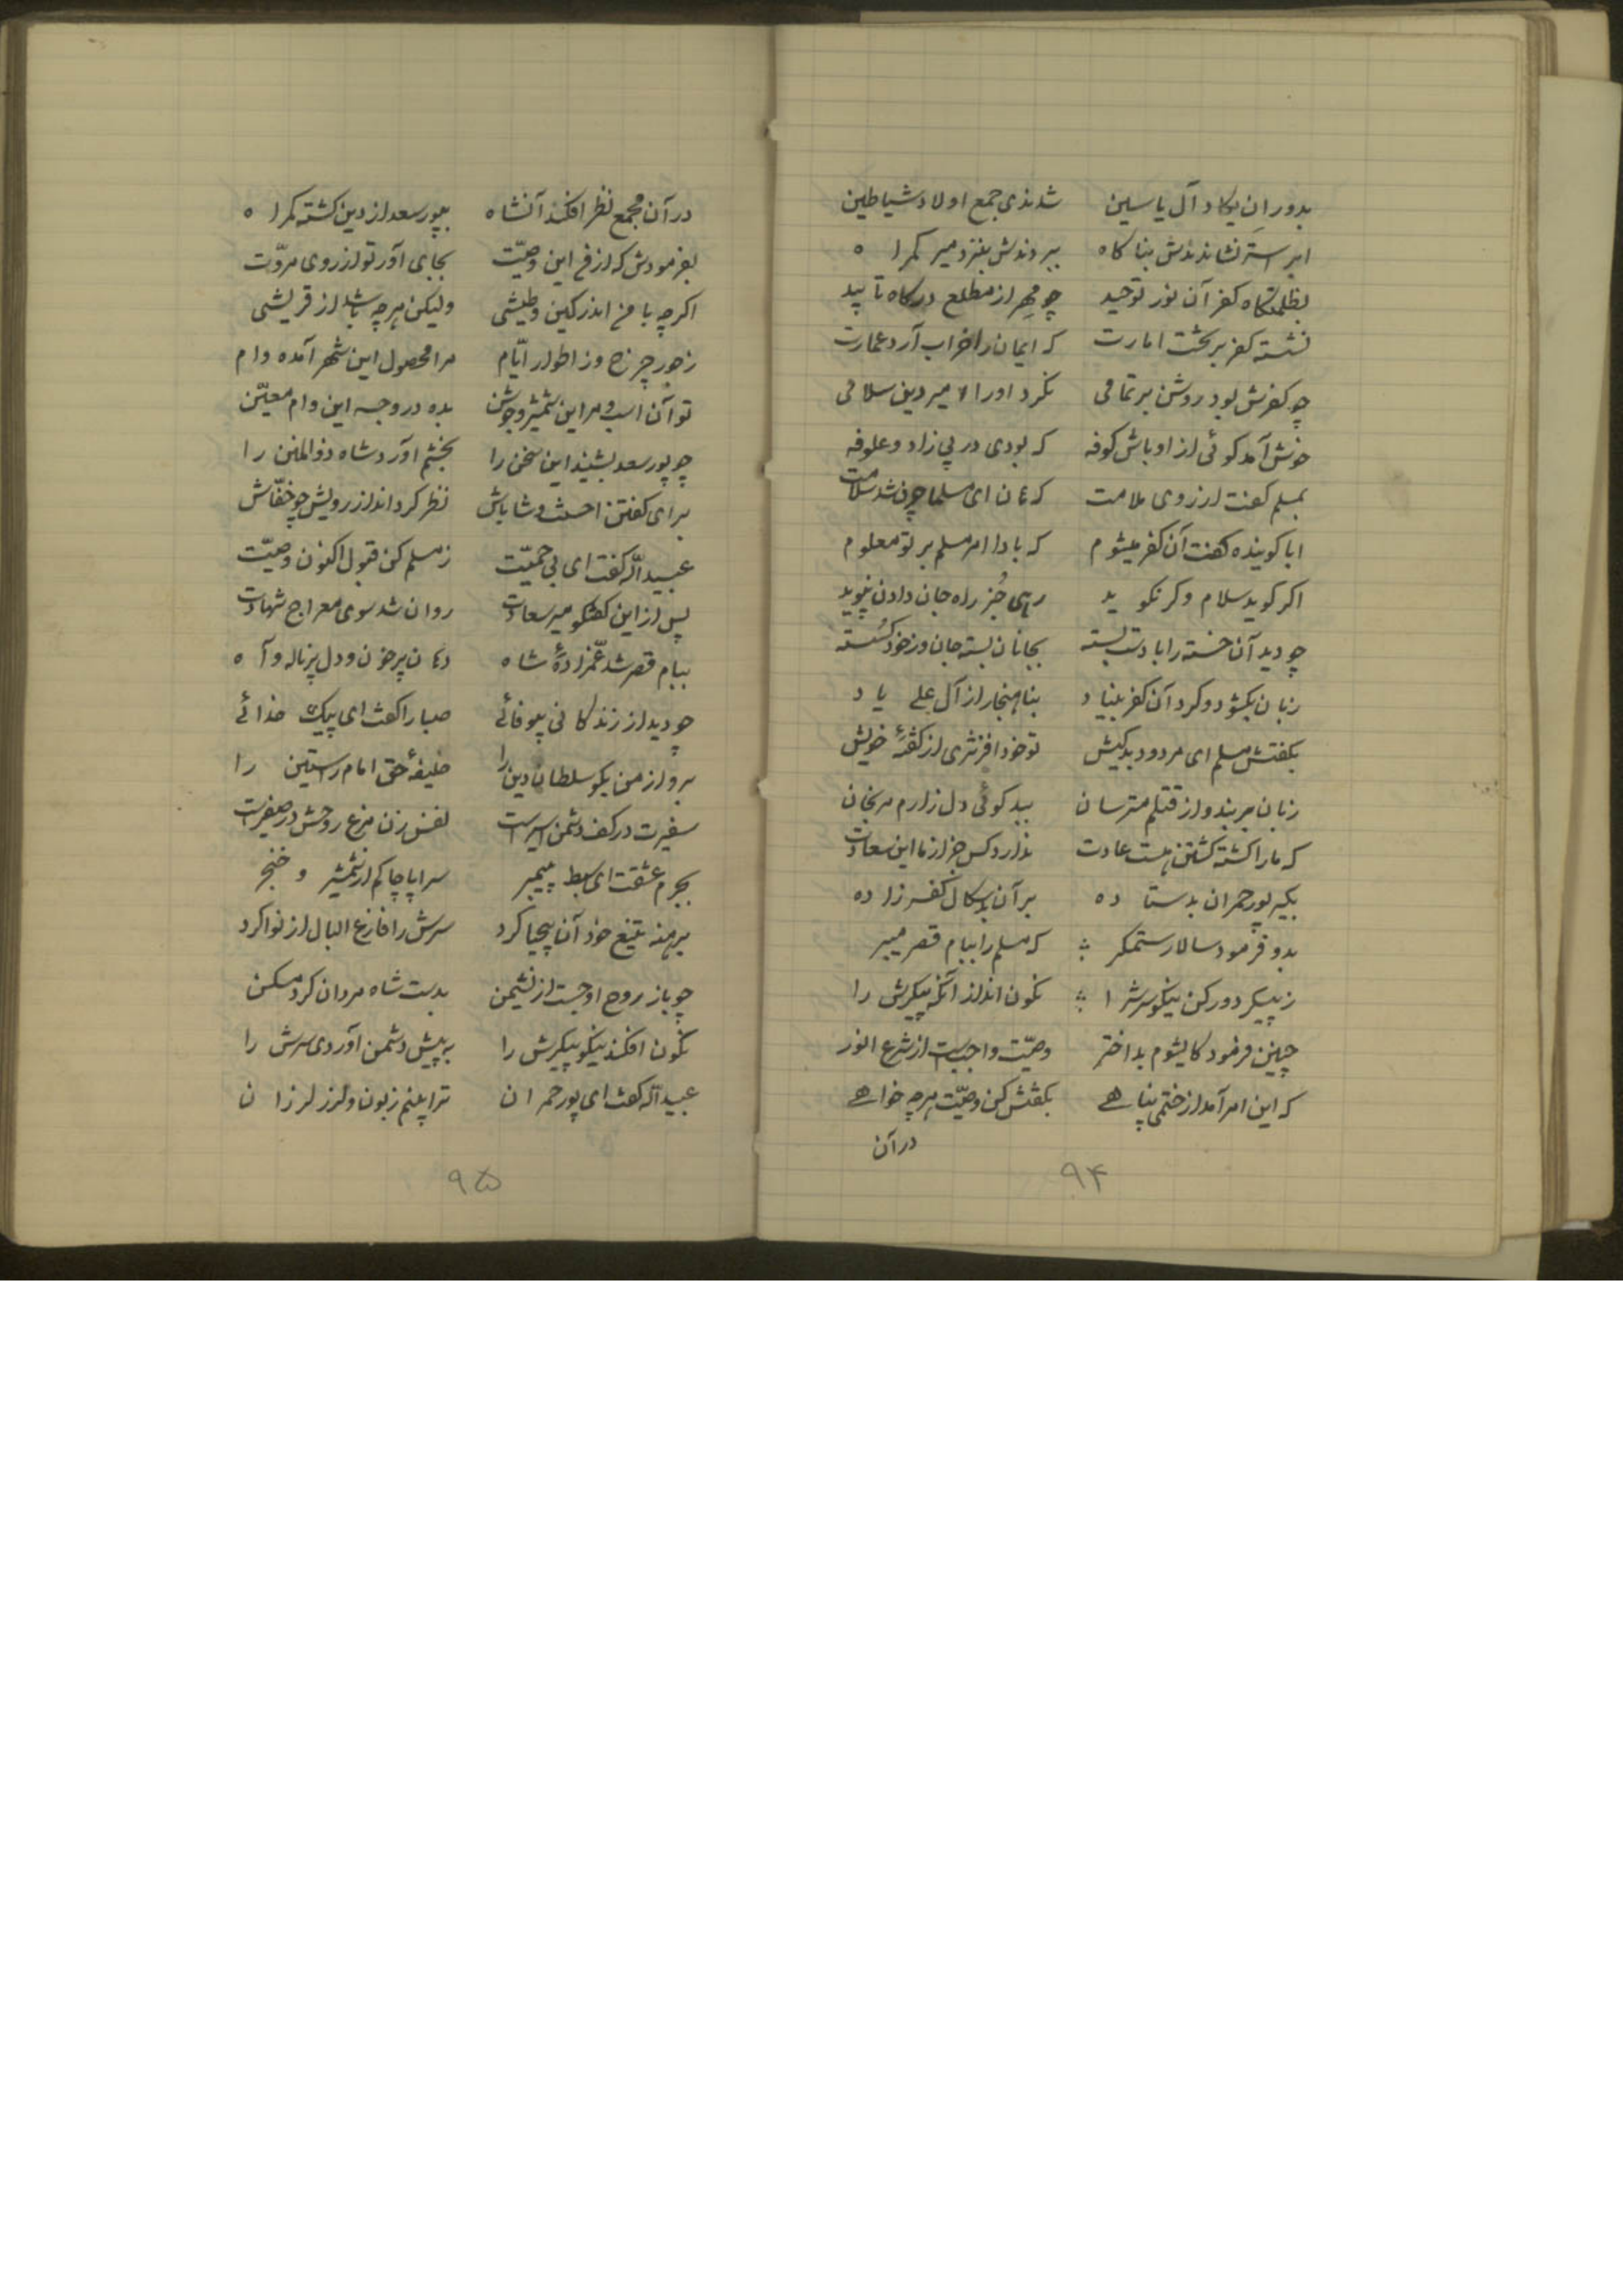 بدوران یکاد آل یاسین شدندی جمع اولاد شیاطین
ابر استر نشاندندش بناکاه ببردندش بنزد میر کمراه
بظلمتکاه کفر آن نور توحید چو مهر از مطلع درکاه تابید
نشسته کفر بر تخت امارت که ایمان را خراب آرد عمارت
چو کفرش بود روشن بر تمامی نکرد او را امیر دین سلامی
خوش آمد کوئی از اوباش کوفه که بودی در پی زاد و علوفه
بمسلم کفت از روی ملامت که هان ای مسلما چون شد سلامت
ابا کوینده کفت آن کفر میشوم که بادا امر مسلم بر تو معلوم
اکر کوید سلام و کر نکوید رهی جز راه جان دادن نپوید
چو دید آن خسته را با دست بسته بجانان بسته جان وز خود کسسته
زبان بکشود و کرد آن کفر بنیاد بناهنجار از آل علی یاد
بکفتش مسلم ای مردود بدکیش تو خود افزنتری از کفتهٔ خویش
زبان بر بند و از قتلم مترسان ببد کوئی دل زارم مرنجان
که ما را کشته کشتن هست عادت ندارد کس جز از ما این سعادت
بکیر پور حمران بدستاده بر آن بدسکال کفر زاده
بدو فرمود سالار ستمکر که مسلم را ببام قصر میبر
ز پیکر دور کن نیکو سرشرا نکون انداز آنکه پیکرش را
چنین فرمود کایشوم بداختر وصیّت واجب است از شرع انور
که این امر آمد از ختمی پناهی بکفتش کن وصیّت هرچه خواهی
در آن
۹۴
در آن مجمع نظر افکند آنشاه بپور سعد از دین کشته کمراه
بفرمودش که از من این وصیّت بجای آور تو از روی مروّت
اکرچه با من اندر کین و طیشی ولیکن هرچه باشد از قریشی
ز جور چرخ وز اطوار ایّام مرا محصول این شهر آمده وام
تو آن اسب و مر این شمشیر و جوشن بده در وجه این وام معیّن
چو پور سعد بشنید این سخن را بخشم آورد شاه ذوالمنن را
برای کفتن احسنت و شاباش نظر کرد اندر رویش چو خفّاش
عبیداللّه کفت ای بی حمیّت ز مسلم کن قبول اکنون وصیّت
پس از این کفتکو میر سعادت روان شد سوی معراج شهادت
ببام قصر شد عمّزادهٔ شاه دهان پرخون و دل پر ناله و آه
چو دید از زندکانی بیوفائی صبا را کفت ای پیک خدائی
برو از من بکو سلطان دین را خلیفهٔ حق امام راستین را
سفیرت در کف دشمن اسیر است نفس زن مرغ روحش در صفیر است
بجرم عشقت ای سبط پیمبر سراپا چاکم از شمشیر و خنجر
برهنه تیغ خود آن بیحیا کرد سرش را فارغ البال از نوا کرد
چو باز روح او جست از نشیمن بدست شاه مردان کرد مسکن
نکون افکند نیکو پیکرش را به پیش دشمن آوردی سرش را
عبیداللّه کفت ای پور حمران ترا بینم زبون و لرز لرزان
۹۵